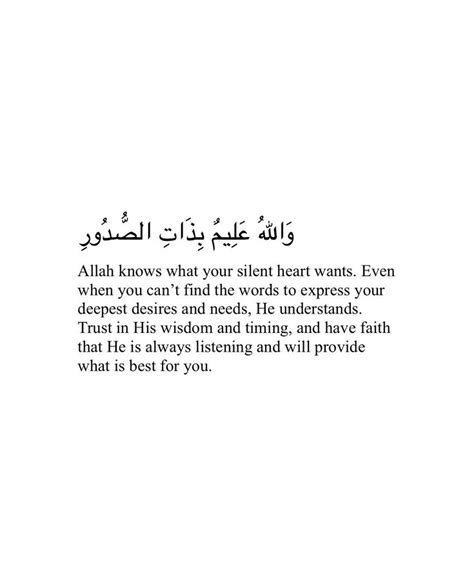 وَاللهُ عَلِيمٌ بِذَاتِ الصُّدُورِ
Allah knows what your silent heart wants. Even
when you can’t find the words to express your
deepest desires and needs, He understands.
Trust in His wisdom and timing, and have faith
that He is always listening and will provide
what is best for you.